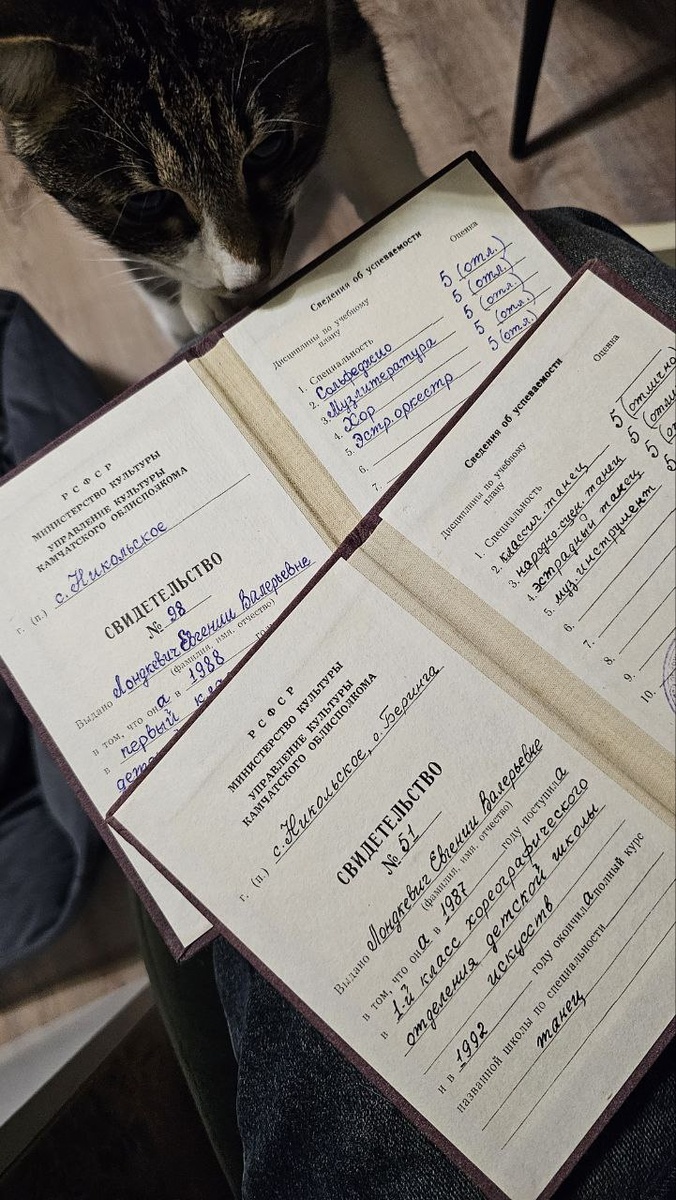 РСФСР
МИНИСТЕРСТВО КУЛЬТУРЫ
УПРАВЛЕНИЕ КУЛЬТУРЫ
КАМЧАТСКОГО ОБЛИСПОЛКОМА
г. (п.) с. Никольское
СВИДЕТЕЛЬСТВО
№ 98
Выдано Лондкевич Евгении Валерьевне
(фамилия, имя, отчество)
в том, что она в 1988
в первый
Сведения об успеваемости
Дисциплины по учебному плану
Оценка
1. Специальность 5 (отл.)
2. Сольфеджио 5 (отл.)
3. Музлитература 5 (отл.)
4. Хор 5 (отл.)
5. Эстр. оркестр 5 (отл.)
6.
7.
РСФСР
МИНИСТЕРСТВО КУЛЬТУРЫ
УПРАВЛЕНИЕ КУЛЬТУРЫ
КАМЧАТСКОГО ОБЛИСПОЛКОМА
г. (п.) с. Никольское, о. Беринга
СВИДЕТЕЛЬСТВО
№ 51
Выдано Лондкевич Евгении Валерьевне
(фамилия, имя, отчество)
в том, что она в 1987 году поступила
в 1-й класс хореографического
отделения детской школы
искусств
и в 1992 году окончила полный курс
названной школы по специальности
танец
Сведения об успеваемости
Дисциплины по учебному плану
Оценка
1. Специальность 5 (отлично
2. классич. танец 5
3. народно-сцен. танец 5
4. эстрадный танец 5
5. муз. инструмент
6.
7.
8.
9.
10.